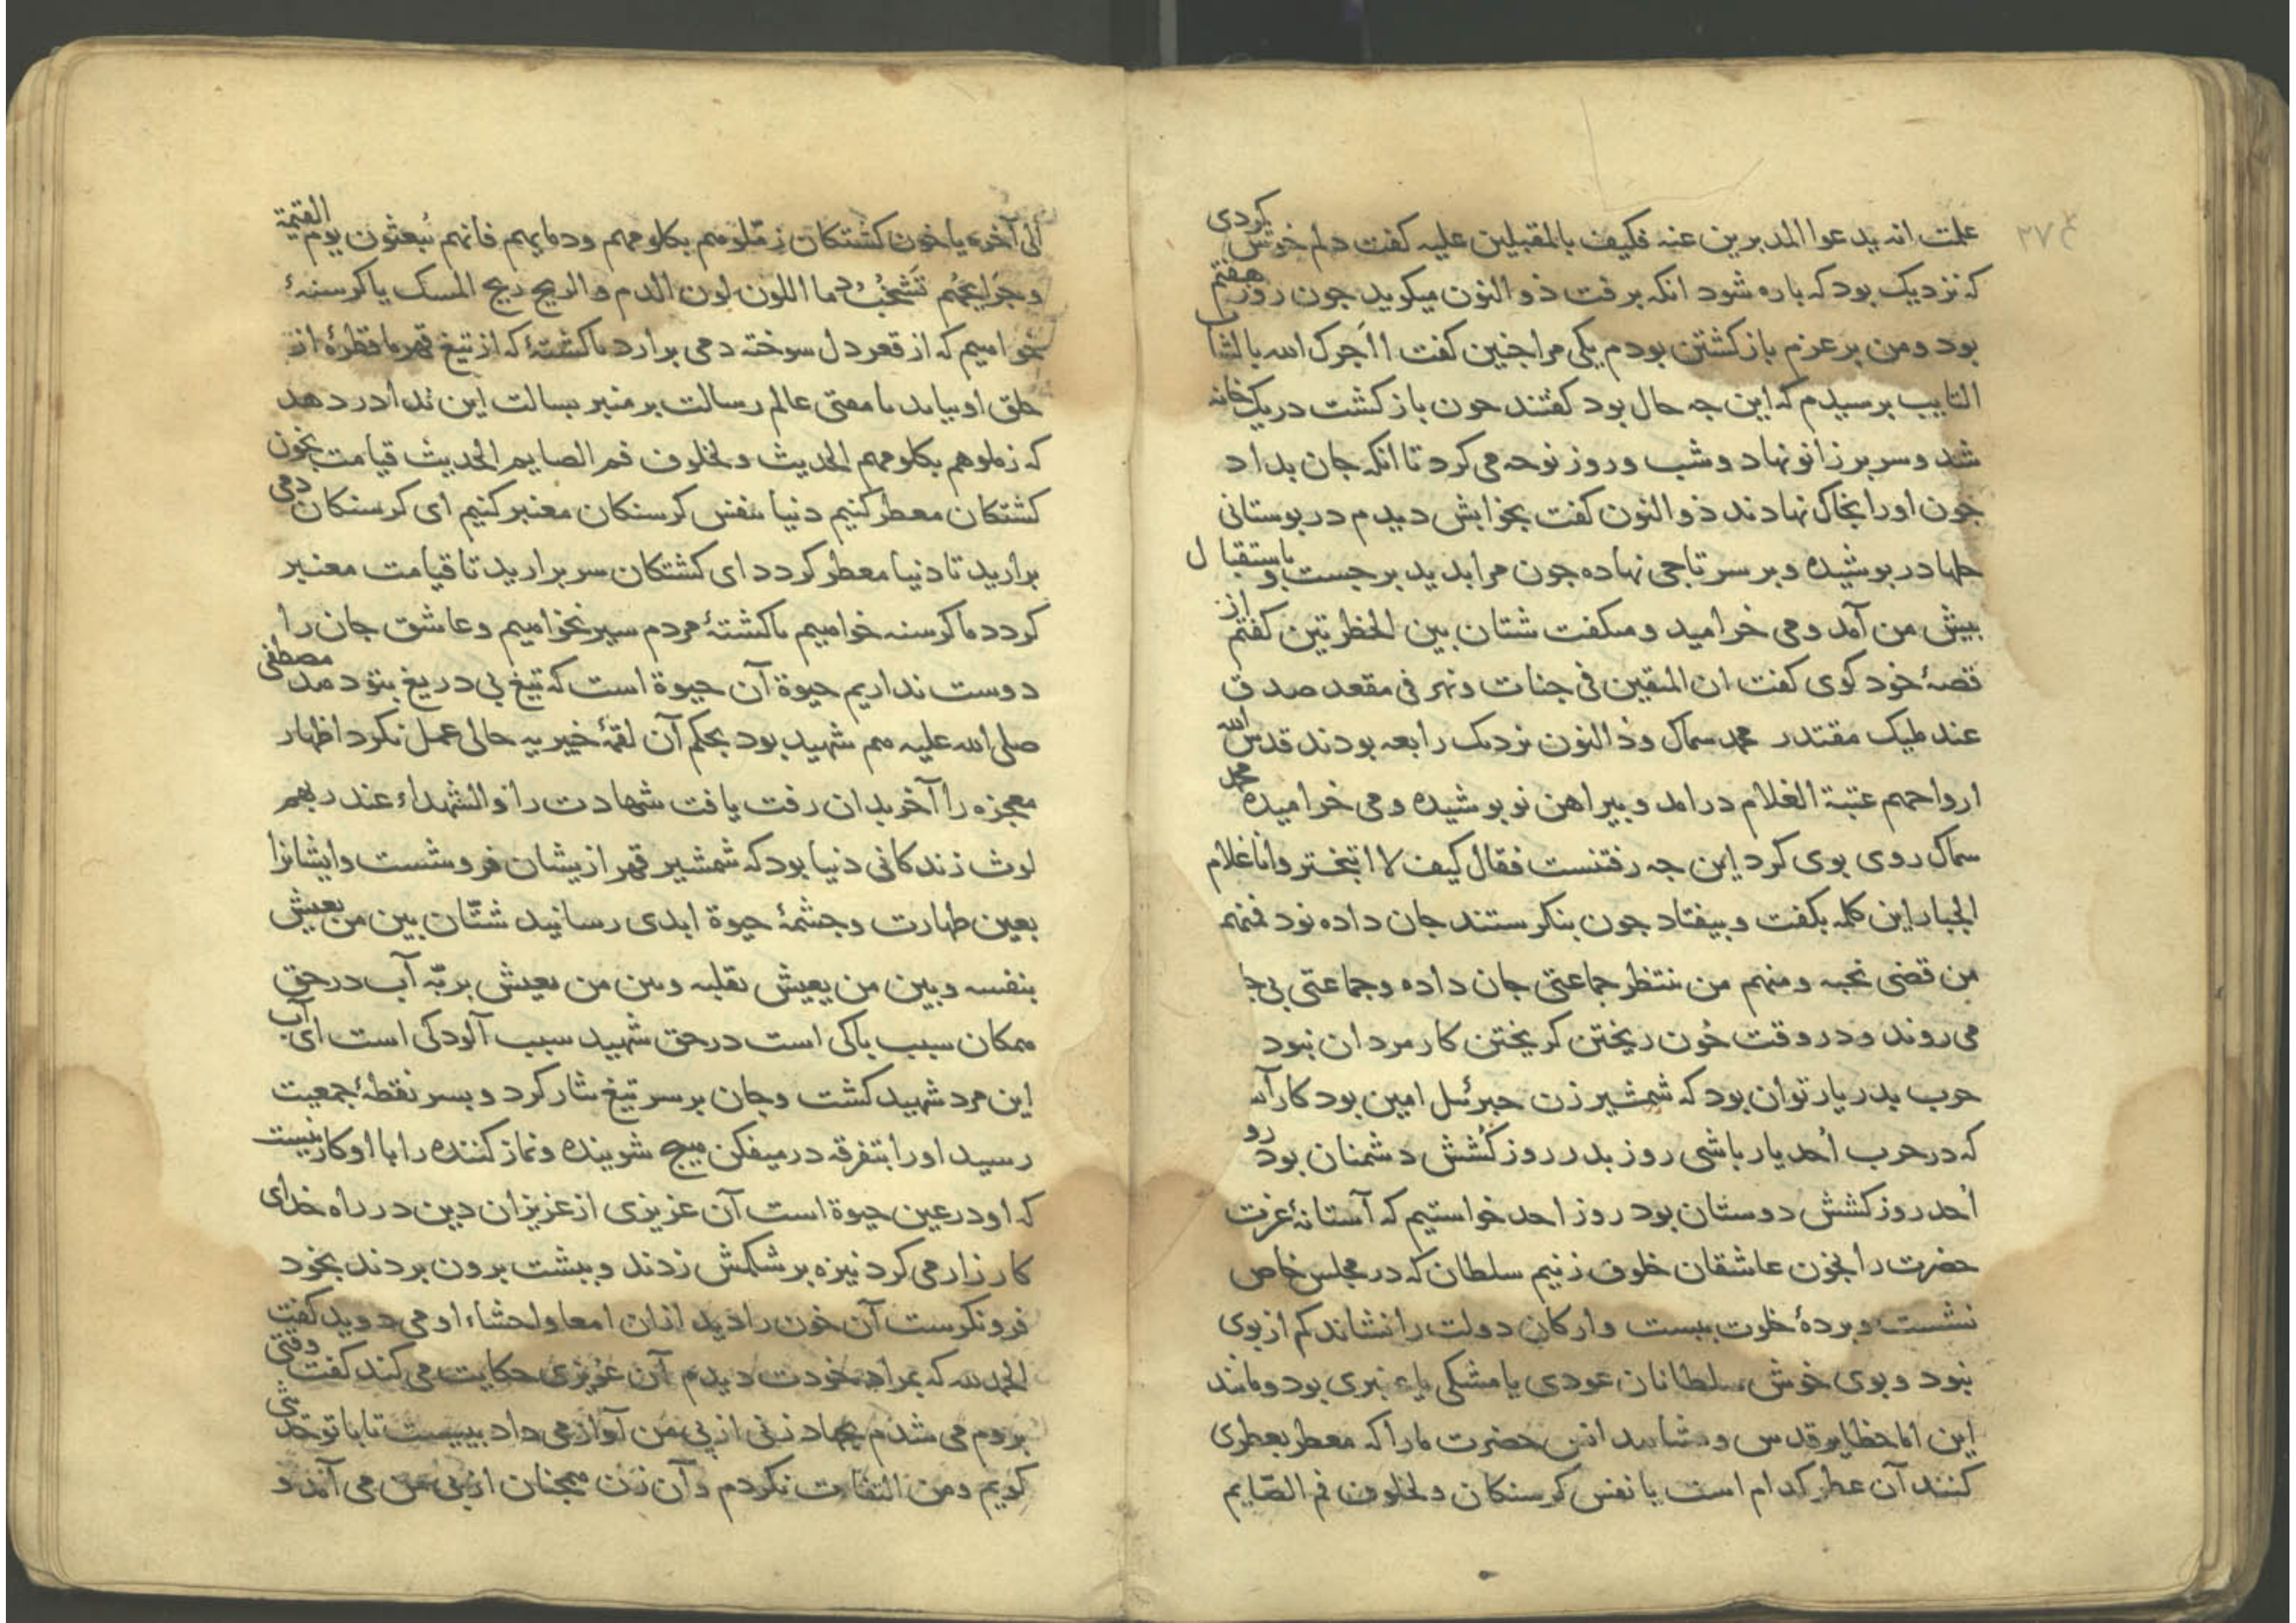 ۲۷٤
علمت انه يدعوا المدبرين عنه فكيف بالمقبلين عليه كفت دلم خوش كردى
كه نزديك بود كه باره شود انكه برفت ذو النون ميكويد جون روز هفتم
بود ومن بر عزم باز كشتن بودم يكى مرا جنين كفت ااجرك الله بالشاب
التايب برسيدم كه اين جه حال بود كفتند جون باز كشت در يك خانه
شد و سر بر زانو نهاد و شب و روز نوحه مى كرد تا انكه جان بداد
جون اورا بخاك نهادند ذو النون كفت بخوابش ديدم در بوستانى
حلها در بوشيده و بر سر تاجى نهاده جون مرا بديد برجست و باستقبال
بيش من آمد و مى خراميد و ميكفت شتان بين الخطرتين كفتم از
قصۀ خود كوى كفت ان المتقين فى جنات و نهر فى مقعد صدق
عند مليك مقتدر محمد سماك و ذ النون نزديك رابعه بودند قدس الله
ارواحهم عتبة الغلام درامد و بيراهن نو بوشيده و مى خراميده محمد
سماك روى بوى كرد اين جه رفتنست فقال كيف لا اتبختر وانا غلام
الجبار اين كلمه بكفت و بيفتاد جون بنكرستند جان داده بود فمنهم
من قضى نحبه و منهم من ينتظر جماعتى جان داده و جماعتى بى جا
مى روند و در وقت خون ريختن كريختن كار مردان نبود
حرب بدر يار توان بود كه شمشير زن جبرئيل امين بود كار آنست
كه در حرب اُحد يار باشى روز بدر روز كُشش دشمنان بود رو
اُحد روز كشش دوستان بود روز احد خواستيم كه آستانۀ عزت
حضرت را بخون عاشقان خلوق زنيم سلطان كه در مجلس خاص
نشست و بردۀ خلوت ببست و اركان دولت را نشاند كم از بوى
نبود و بوى خوش سلطانان عودى يا مشكى يا عنبرى بود و مانند
اين اما حظاير قدس و مشاهد انس حضرت ما را كه معطر بعطرى
كنند آن عطر كدام است يا نفس كرسنكان و لخلوف فم الصّايم
الى آخره يا خون كشتكان زمّلوهم بكلومهم ودمايهم فانهم يُبعثون يوم القيمة
و جراحهُم تَشخُبُ دما اللون لون الدم و الريح ريح المسك يا كرسنۀ
خواهيم كه از قعر دل سوخته دمى برارد يا كشتۀ كه از تيغ قهر ما قطرۀ از
حلق او بيايد يا مفتى عالم رسالت بر منبر بسالت اين ندا در دهد
كه زملوهم بكلومهم الحديث و لخلوف فم الصايم الحديث قيامت بخون
كشتكان معطر كنيم دنيا بنفس كرسنكان معنبر كنيم اى كرسنكان دمى
براريد تا دنيا معطر كردد اى كشتكان سر براريد تا قيامت معنبر
كردد ما كرسنه خواهيم يا كشتۀ مردم سير نخواهيم و عاشق جان را
دوست نداريم حيوة آن حيوة است كه تيغ بى دريغ بتو دهد مصطفى
صلى الله عليه هم شهيد بود بحكم آن لقمۀ خيبريه حالى عمل نكرد اظهار
معجزه را آخر بدان رفت يافت شهادت را و الشهداء عند ربهم
لوث زندكانى دنيا بود كه شمشير قهر ازيشان فرو شست و ايشانرا
بعين طهارت و جشمۀ حيوة ابدى رسانيد شتّان بين من يعيش
بنفسه و بين من يعيش بقلبه و بين من يعيش بربّه آب در حق
همكان سبب باكى است در حق شهيد سبب آلودكى است اى آب
اين مرد شهيد كشت و جان بر سر تيغ نثار كرد و بسر نقطۀ جمعيت
رسيد اورا بتفرقه در ميفكن هيج شوينده و نماز كننده را با او كار نيست
كه او در عين حيوة است آن عزيزى از عزيزان دين در راه خداى
كارزار مى كرد نيزه بر شكمش زدند و ببشت برون بردند بخود
فرو نكرست آن خون را ديد ازان امعا و احشاء او مى دويد كفت
الحمد لله كه بمراد خودت ديدم آن عزيزى حكايت مى كند كفت وقتى
بروم مى شدم بجهاد زنى از بى من آواز مى داد ببيست تا با تو حديثى
كويم و من التفات نكردم و آن زن همجنان از بى من مى آمد و